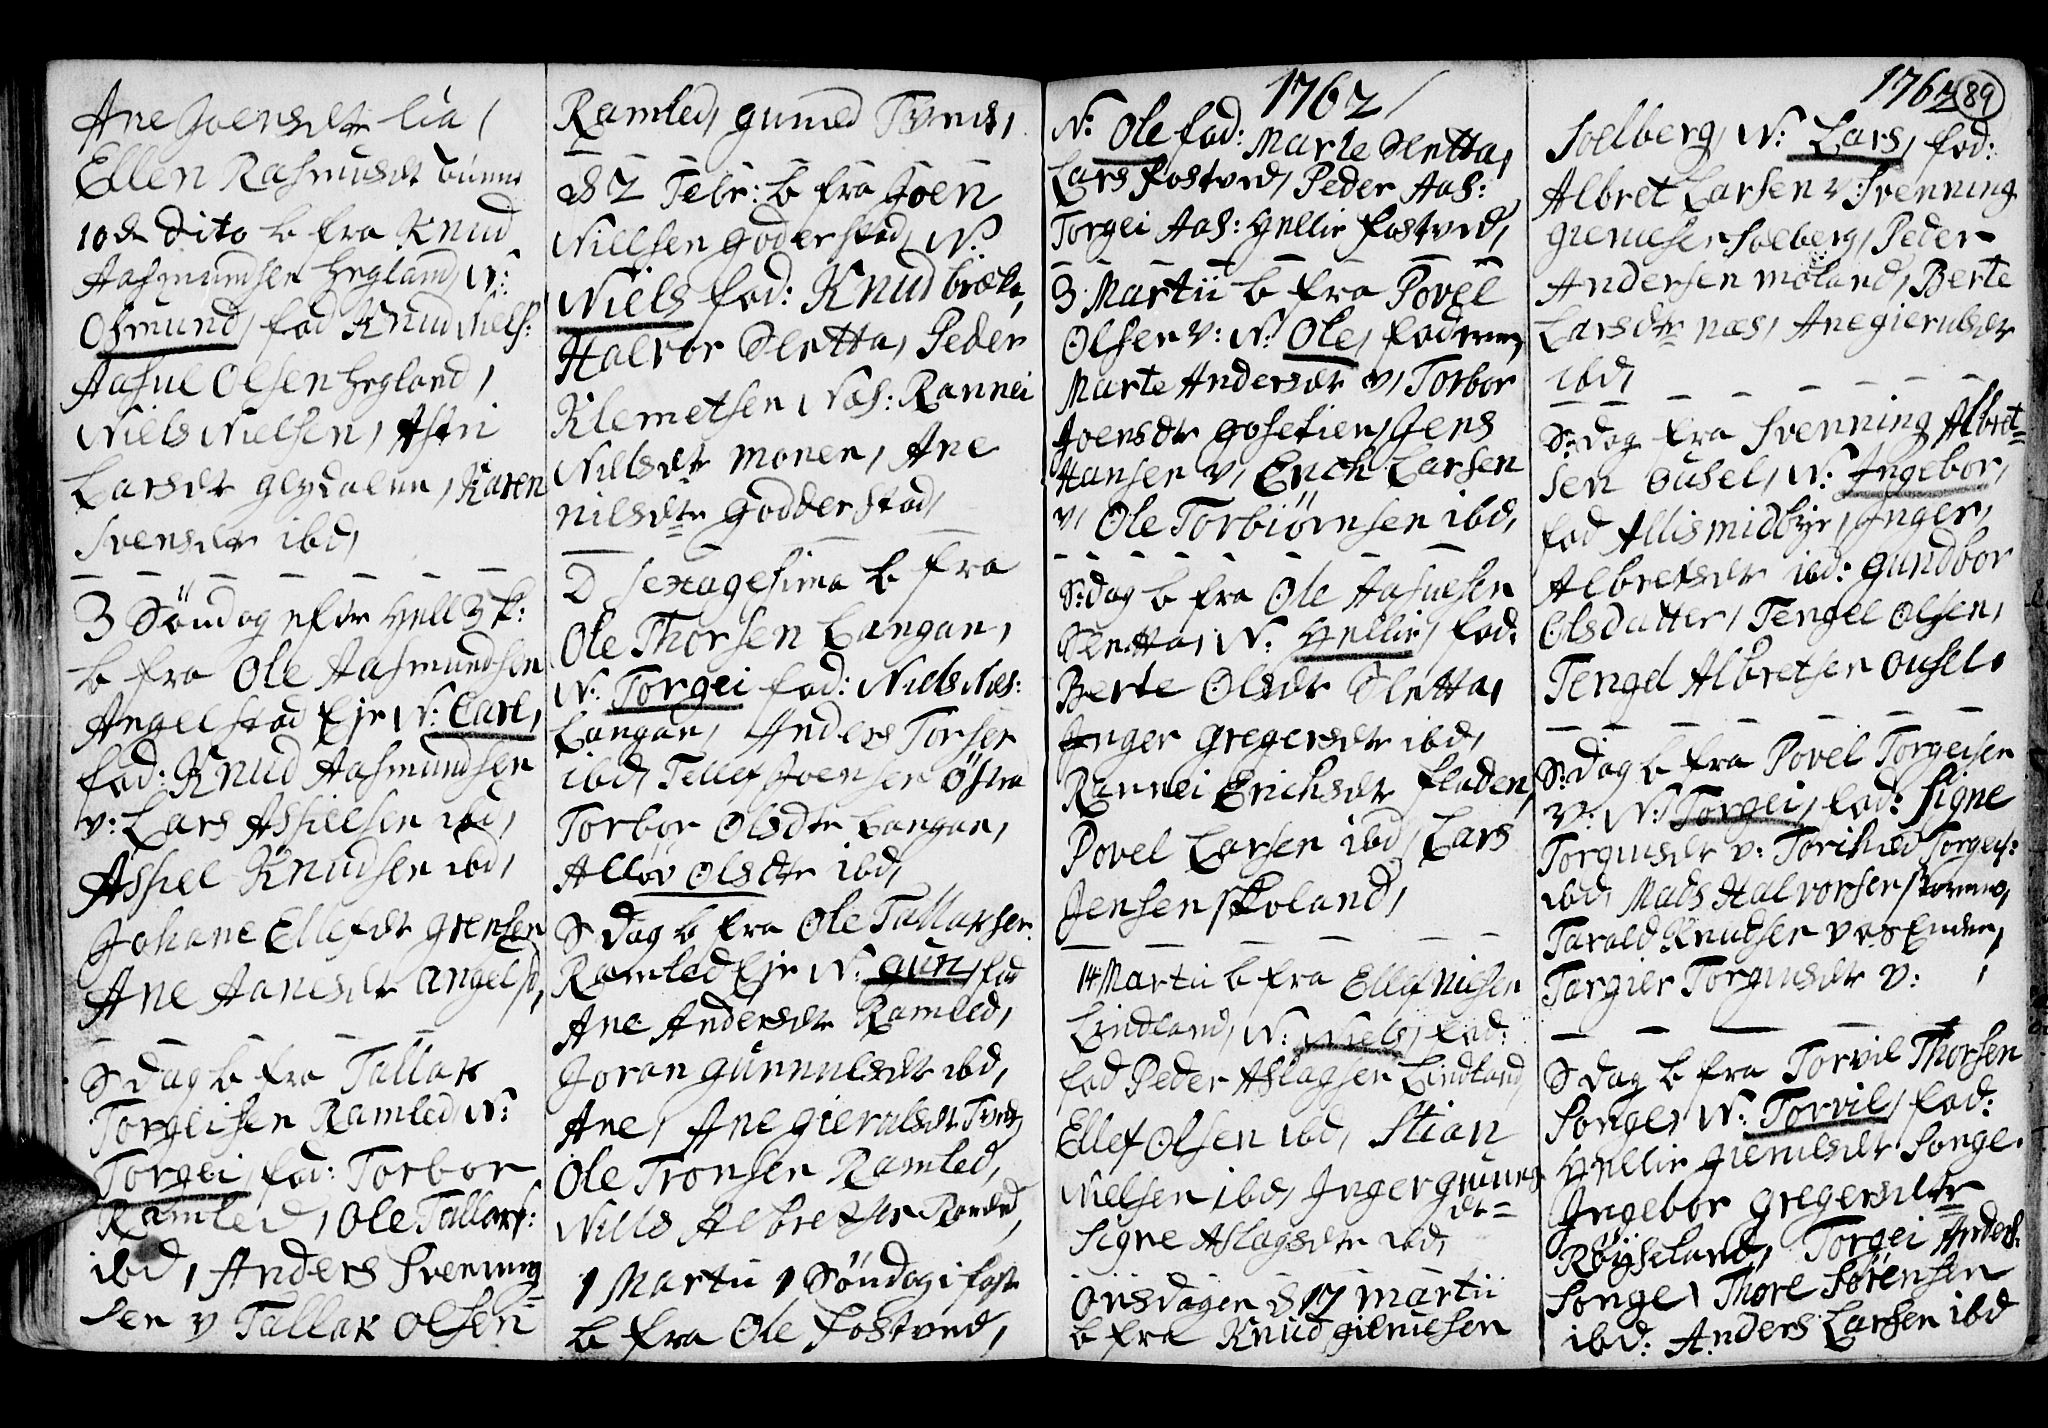 Ane Joensdtr Lia,
Ellen Rasmusdtr
10de Dito b fra Knud
Aasmundsen Hegland, N:
Osmund, fad Knud Niels:
Aasul Olsen Hegland,
Niels Nielsen, Astri
Larsdtr Glydalen, Karen
Svensdtr ibd,
3 Söndag efter Hell 3 k:
b fra Ole Aasmundsen
Angelstad Eje N: Carl,
fad: Knud Aasmundsen
v: Lars Assielsen ibd,
Assiel Knudsen ibd,
Johane Ellefdtr Grensen
Ane Aanesdtr Angelst,
S dag b fra Tallak
Torgeisen Ramled, N:
Torgei, fad: Torbor
Ramled, Ole Tallaks:
ibd, Anders Svenning
sen v Tallak Olsen
Ramled, Guned Tveds,
d 2 Febr: b fra Joen
Nillsen Goderstad, N:
Niels fad: Knud bræka,
Halvor Sletta, Peder
Klemetsen Næs: Rannei
Nielsdtr Monen, Ane
Nilsdtr Godderstad,
D Sexagesima b fra
Ole Thorsen Langan,
N: Torgei fad: Niels Næs:
Langan, Anders Torsen
ibd, Tellef Joensen
Torbor Olsdtr Langan,
Alløv Olsdtr ibd,
S dag b fra Ole Tallaksen
Ramled Eje N: Gun, fad
Ane Andersdtr Ramled,
Joran Gunnulsdtr ibd,
Ane, Ane Gierulsdtr Tvedt,
Ole Tronsen Ramled,
Nills Albretsen Ramled,
1 Martii 1 Söndag i faste
b fra Ole Fostved,
1762
N: Ole fad: Marte Sletta,
Lars Fostved, Peder Aas:
Torgei Aas: Hellie Fostved,
3 Martii b fra Povel
Olsen v: N: Ole, fadrene
Marte Andersdtr v, Torbor
Joensdtr Gosefien, Jens
Hansen v, Erich Larsen
v, Ole Torbiörnsen ibd,
S: dag b fra Ole Aasulsen
Sletta, N: Hellie, fad:
Berte Olsdtr Sletta,
Inger Gregersdtr ibd,
Rannei Erichsdtr Fladen,
Povel Larsen ibd, Lars
Jensen Skoland,
14 Martii b fra Ellef Nielsen
Lindland, N: Niels, fad:
fad Peder Aslagsen Lindland
Ellef Olsen ibd, Stian
Nielsen ibd, Inger
dtr=
Signe Aslagsdtr ibd,
Onsdagen d 17 martii
b fra Knud Gierulsen
1762 89
Solberg, N: Lars, fad:
Albret Larsen v: Svenning
Gierulsen Solberg, Peder
Andersen Moland, Berte
Larsdtr Næs, Ane Gierulsdtr
ibd,
S: dag fra Svenning Albret=
sen Ousel, N: Ingebor,
fad Allis Midbye, Inger,
Albretsdtr ibd: Gundbor
Olsdatter, Tengel Olsen,
Tengel Albretsen Ousel.
S: dag b fra Povel Torgeisen
v: N: Torgei, fad: Signe
Torgiusdtr v: Torkild Torgeis:
ibd, Mads Halvorsen
Tarald Knudsen
Torgier Torgiusdtr v:
S dag b fra Torvil Thorsen
Songe, N: Torvil, fad:
Hellie Gierulsdtr Songe.
Ingebor Gregersdtr
Röyseland, Torgei Anders:
Songe, Thore Sörensen
ibd: Anders Larsen ibd